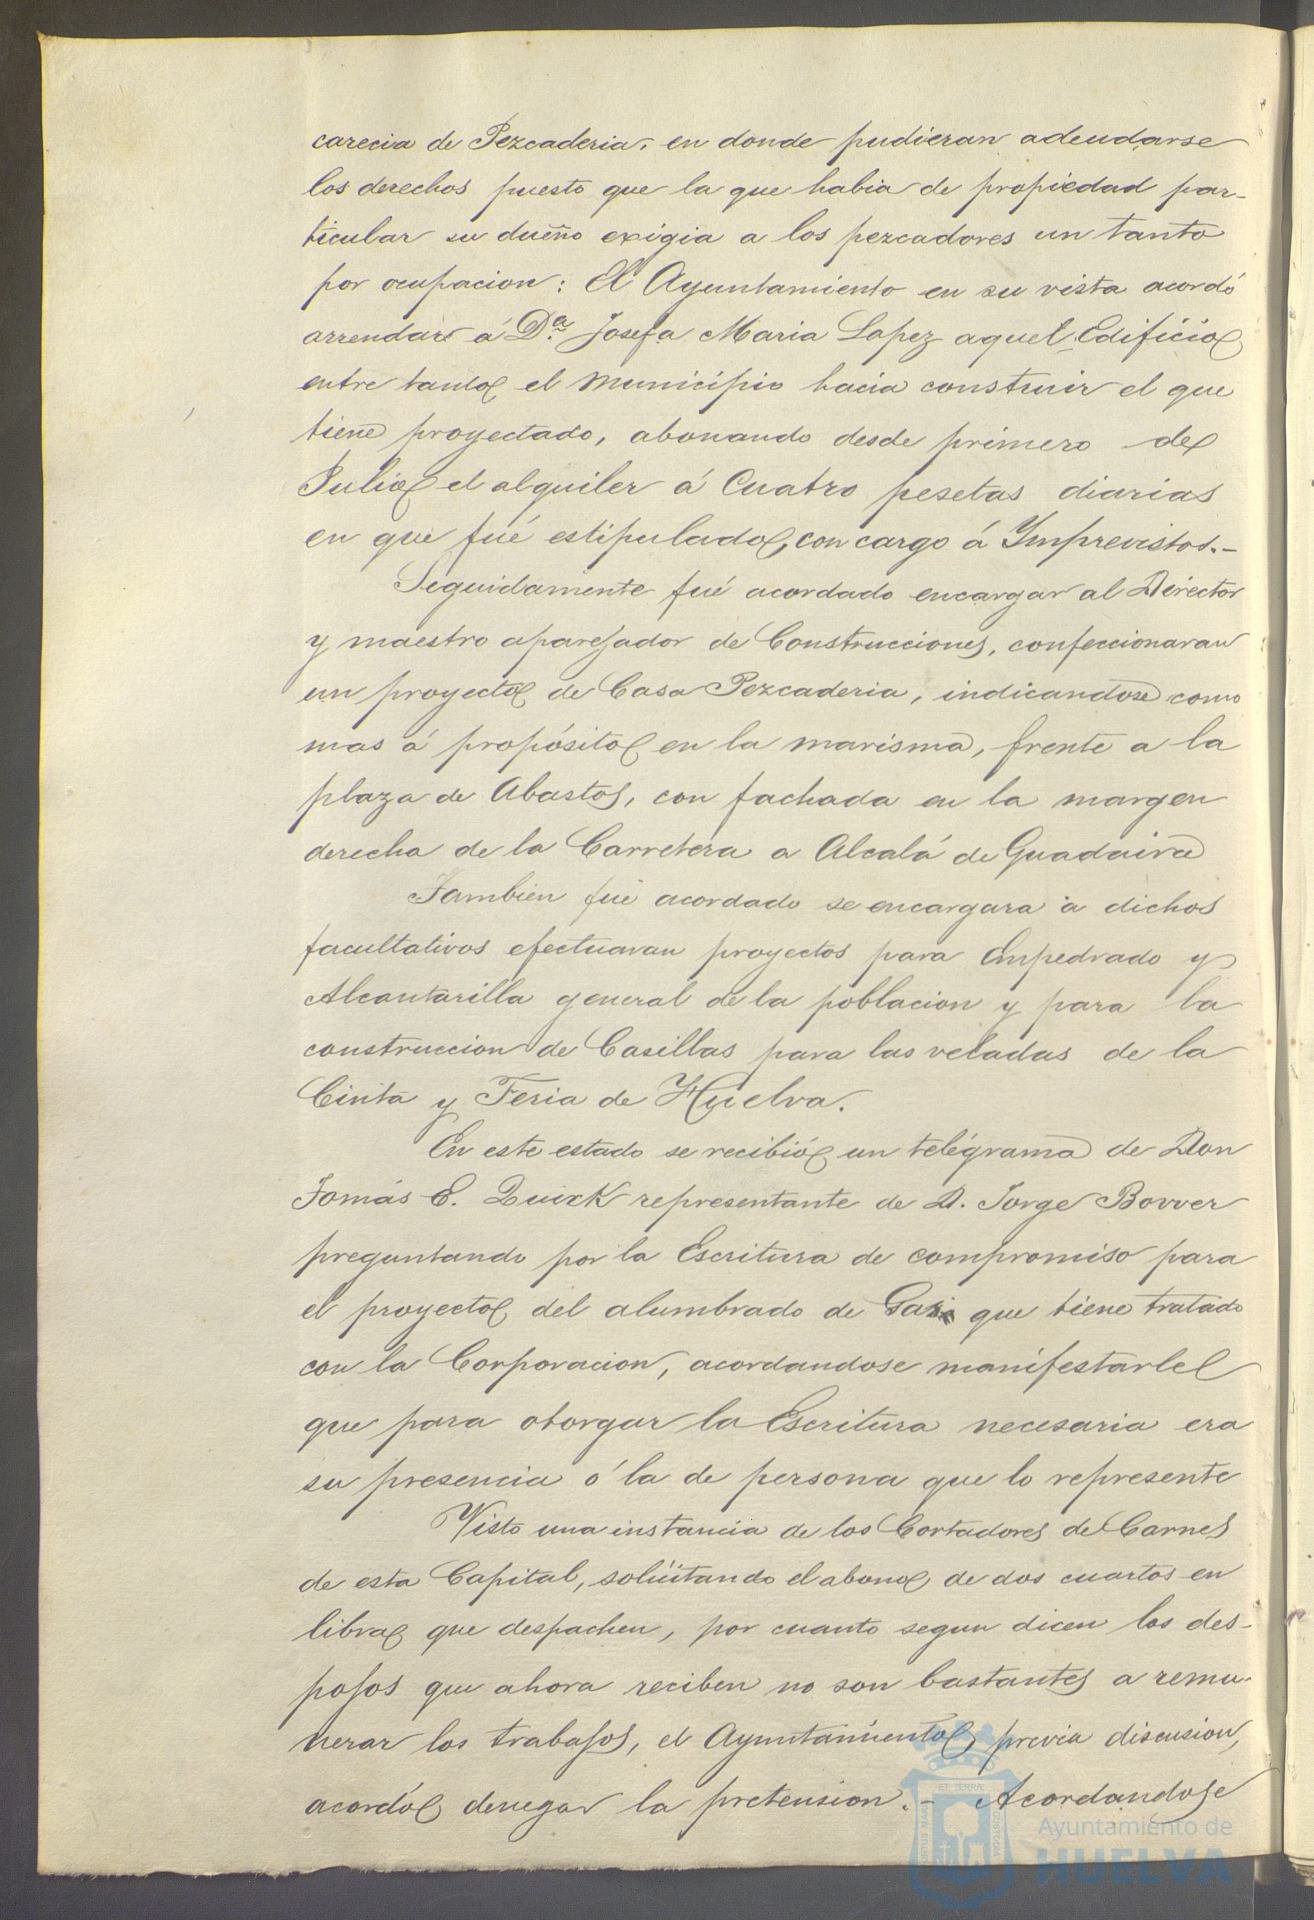 carecia de Pezcaderia, en donde pudieran adeudarse
los derechos puesto que la que habia de propiedad par-
ticular su dueño exigia a los pezcadores un tanto
por ocupacion: El Ayuntamiento en su vista acordó
arrendar á D.ª Josefa Maria Lopez aquel Edificio
entre tanto el municipio hacia construir el que
tiene proyectado, abonando desde primero de
Julio el alquiler á Cuatro pesetas diarias
en que fué estipulado, con cargo á Ymprevistos.-
Seguidamente fué acordado encargar al Director
y maestro aparejador de Construcciones, confeccionaran
un proyecto de Casa Pezcaderia, indicandose como
mas á propósito en la marisma, frente a la
plaza de Abastos, con fachada en la margen
derecha de la Carretera a Alcalá de Guadaira
Tambien fué acordado se encargara a dichos
facultativos efectuaran proyectos para Empedrado y
Alcantarilla general de la poblacion y para la
construccion de Casillas para las veladas de la
Cinta y Feria de Huelva.
En este estado se recibió un telégrama de Don
Tomás E. Quirk representante de D. Jorge Bovver
preguntando por la Escritura de compromiso para
el proyecto del alumbrado de Gas que tiene tratado
con la Corporacion, acordandose manifestarle
que para otorgar la Escritura necesaria era
su presencia ó la de persona que lo represente
Visto una instancia de los Cortadores de Carnes
de esta Capital, solicitando el abono de dos cuartos en
libra que despachen, por cuanto segun dicen los des-
pojos que ahora reciben no son bastantes a remu-
nerar los trabajos, el Ayuntamiento, previa discusion,
acordó denegar la pretension.- Acordandose
Ayuntamiento de
HUELVA